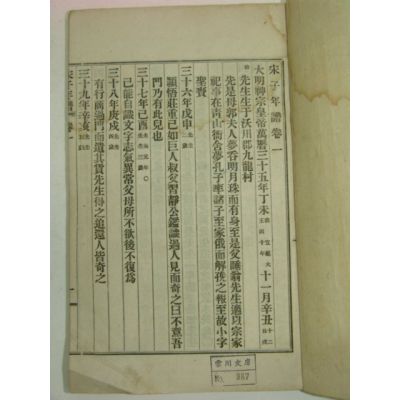 宋子年譜卷一
大明神宗皇帝萬曆三十五年丁未 十一月辛丑
先生生于沃川郡九龍村
先是母郭夫人夢吞明月珠而有身至是父睡翁先生適以宗家
祀事在靑山衙舍夢孔子率諸子至家俄而解娩之報至故小字
聖賚
三十六年戊申
穎悟莊重已如巨人叔父習靜公鑑識過人見而奇之曰不意吾
門乃有此兒也
三十七年己酉
已能自識文字志氣異常父母所不欲後不復爲
三十八年庚戌
有行商過門而遺其貨先生得之追還人皆奇之
三十九年辛亥
宋子年譜 卷一
雲川文庫
No. 387